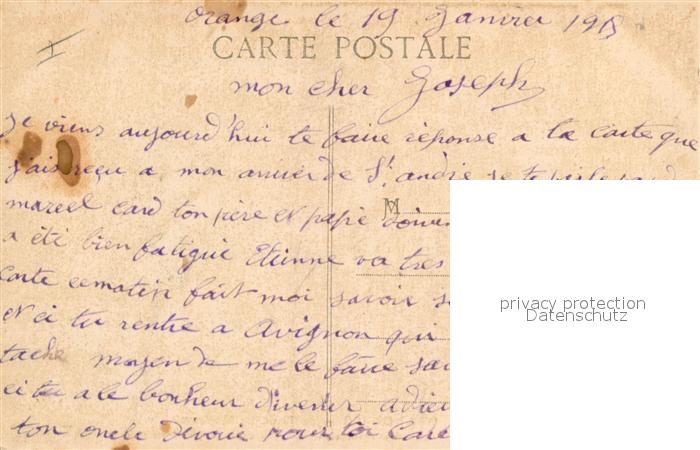 orange le 19 Janvier 1915
CARTE POSTALE
mon cher Joseph
Je viens aujourd'hui te faire réponse a ta carte que
j'ais reçu a mon arriver de St andré je te
marcel card ton père et papé
M
a été bien fatigué Etienne va très
carte ce matin fait moi savoir
et ci tu rentre a Avignon qui
tache moyen de me le faire
ci tu a le bonheur d'i venir
ton oncle dévoué pour toi
privacy protection
Datenschutz